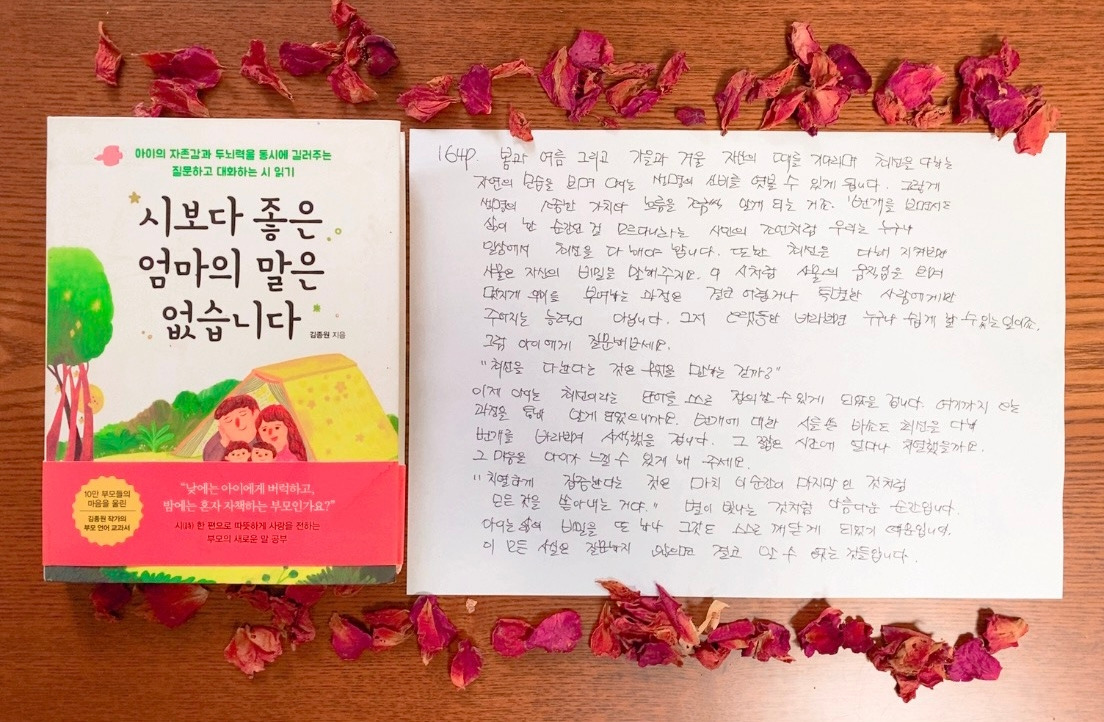 아이의 자존감과 두뇌력을 동시에 길러주는
질문하고 대화하는 시 읽기
시보다 좋은
엄마의 말은
없습니다
김종원 지음
10만 부모들의
마음을 울린
김종원 작가의
부모 언어 교과서
“낮에는 아이에게 버럭하고,
밤에는 혼자 자책하는 부모인가요?”
시(詩) 한 편으로 따뜻하게 사랑을 전하는
부모의 새로운 말 공부
164p. 봄과 여름 그리고 가을과 겨울 자신의 때를 기다리며 최선을 다하는
자연의 모습을 보며 아이는 생명의 신비를 엿볼 수 있게 됩니다. 그렇게
생명의 소중한 가치와 노력을 조금씩 알게 되는 거죠. '번개를 보면서도
삶이 한 순간인 걸 모르다니'라는 시인의 조언처럼 우리는 누구나
일상에서 최선을 다해야 합니다. 또한 최선을 다해 지켜보면
사물은 자신의 비밀을 말해주지요. 이 시처럼 사물의 움직임을 보며
멋지게 의미를 부여하는 과정은 결코 어렵거나 특별한 사람에게만
주어지는 능력이 아닙니다. 그저 바라보면 누구나 쉽게 할 수 있는 일이죠.
그럼 아이에게 질문해보세요.
"최선을 다한다는 것은 무엇을 말하는 걸까?"
이제 아이는 최선이라는 단어를 스스로 정의할 수 있게 되었을 겁니다. 여기까지 오는
과정을 통해 알게 되었으니까요. 번개에 대한 시를 쓴 바쇼도 최선을 다해
번개를 바라보며 사색했을 겁니다. 그 짧은 시간에 얼마나 치열했을까요.
그 마음을 아이가 느낄 수 있게 해 주세요.
"치열하게 집중한다는 것은 마치 이 순간이 마지막인 것처럼
모든 것을 쏟아내는 거야." 별이 빛나는 것처럼 아름다운 순간입니다.
아이는 삶의 비밀을 또 하나 그것도 스스로 깨닫게 되었기 때문입니다.
이 모든 사실은 질문하지 않으면 결코 알 수 없는 것들입니다.